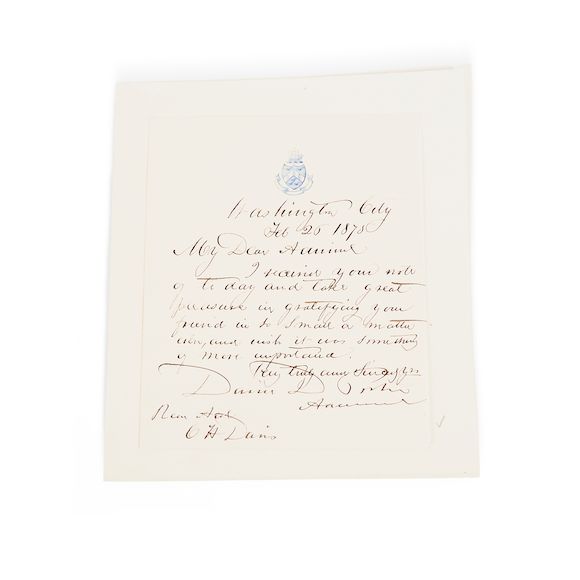 Washington City
Feb 25 1875
My Dear Admiral
I received your note
of to day and take great
pleasure in gratifying your
friend in so small a matter
even, and wish it was something
of more importance.
Very truly and Sincerely yrs
David D. Porter
Admiral
Rear Adml
C H Davis